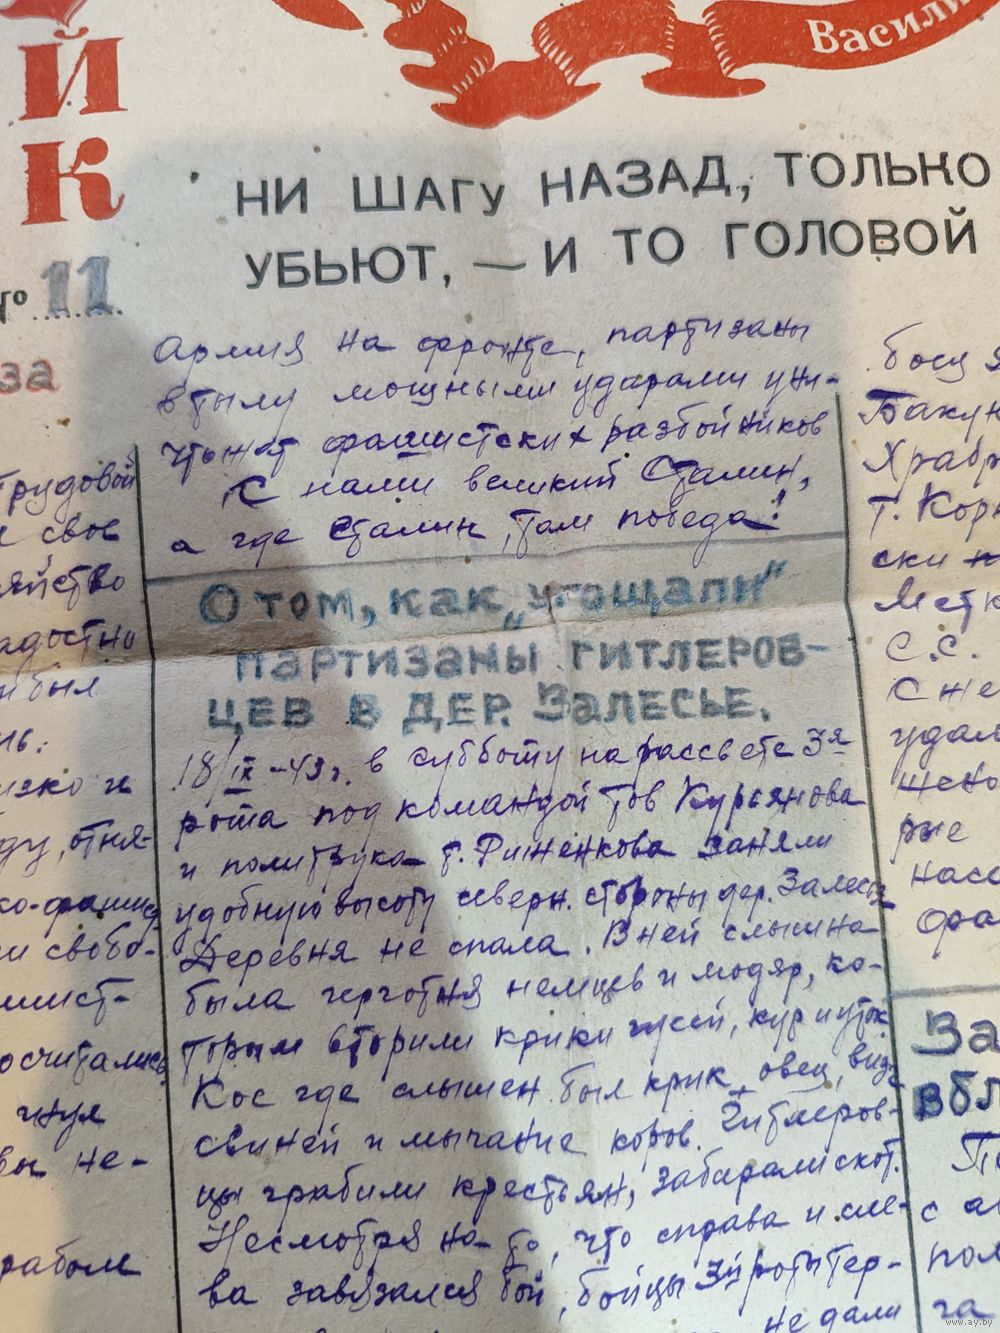 Й
К
Васили
НИ ШАГУ НАЗАД, ТОЛЬКО
УБЬЮТ, — И ТО ГОЛОВОЙ
№ 11
за
трудовой
свое
яйство
адостно
был
ь.
изко и
ду, отня-
ко-фашис
и свобо-
шист-
осчитались
вы не-
работ
Армия на фронте, партизаны
в тылу мощными ударами уни-
чтожат фашистских разбойников
С нами великий Сталин,
а где Сталин, там победа!
О том, как „угощали“
партизаны гитлеров-
цев в дер. Залесье.
18/IX-43г. в субботу на рассвете 3я
рота под командой тов Курьянова
и политрука т. Финенкова заняли
удобную высоту северн. стороны дер. Залесье
Деревня не спала. В ней слышна
была герготня немцев и модяр, ко-
торым вторили крики гусей, кур и уток
Кое где слышен был крик овец, визг
свиней и мычание коров. Гитлеров-
цы грабили крестьян, забирали скот.
Несмотря на то, что справа и сле-
ва завязался бой, бойцы 3й роты тер-
не дали
бою
Бакун
Храбр
т. Корн
ски
Метк
С.С.
С не
удал
шено
рые
насе
фа
За
в бл
По
с а
пол
га
www.ay.by